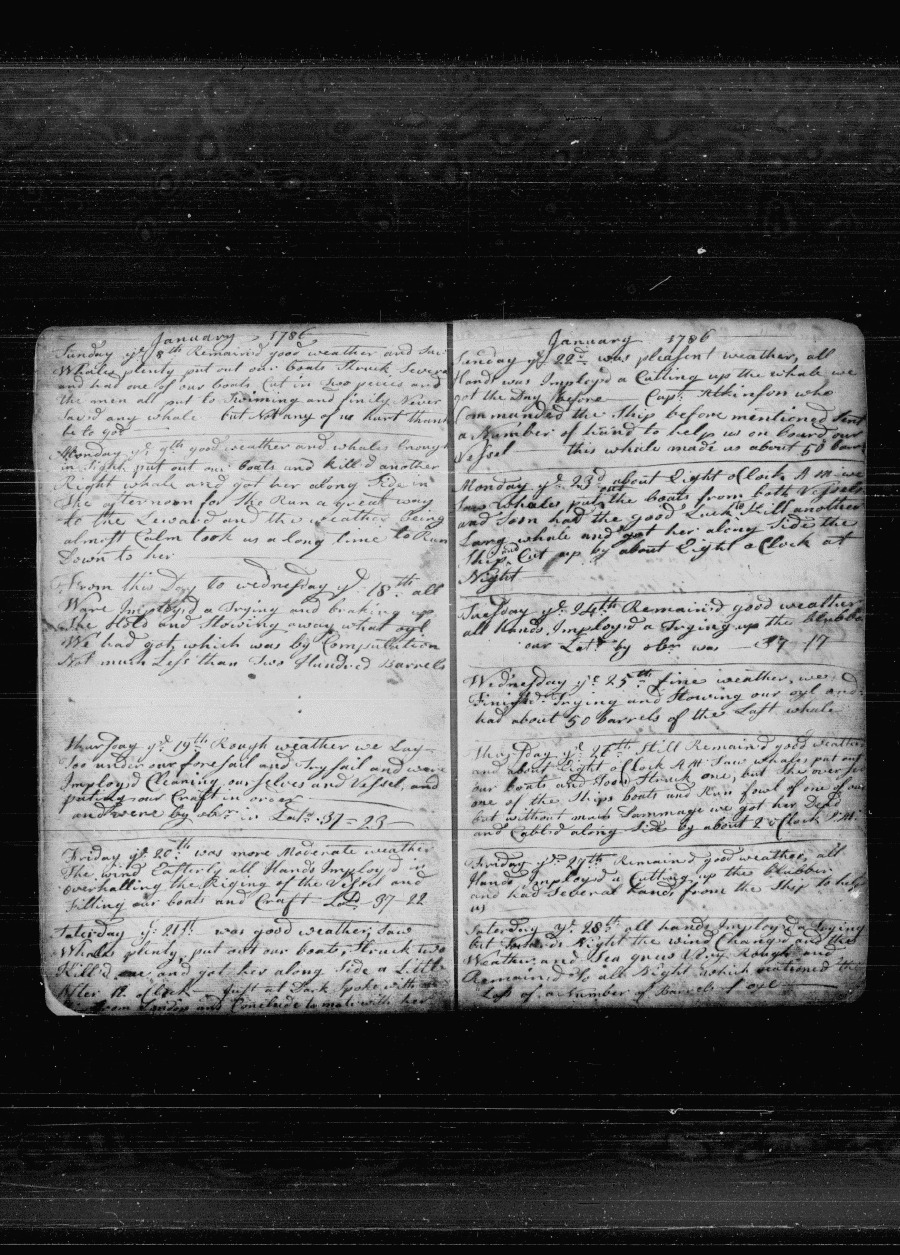 January 1786
Sunday ye 8th Remain'd good weather and Saw
Whales plenty put out our boats Struck Severa
and had one of our boats Cut in two peices and
the men all put to Swiming and finily Never
Saved any whale but Not any of us hurt thank
be to god
Monday ye 9th good weather and whales Enough
in Sight put out our boats and kill'd another
Right whale and got her along Side in
the afternoon for She Run a great way
to the Leward and the weather being
almost Calm took us a long time to Run
Down to her
From this Day to wednesday ye 18th all
Ware Imploy'd a Trying and braking up
The Hold and Stowing away what oyl
We had got, which was by Computation
Not much Less than Two Hundred Barrels
Thursday ye 19th Rough weather we Lay
Too under our foresail and Trysail and were
Imploy'd Cleaning ourselves and Vessel, and
puting our Craft in order
and were by obr in Latd 37 = 23
Friday ye 20th was more Moderate weather
The wind Easterly all Hands Imploy'd in
overhalling the Riging of the Vessel and
Filling our boats and Craft Latd 37 22
Saturday ye 21st was good weather, Saw
Whales plenty, put out our boats, Struck two
Kill'd one, and got her along Side a Little
After 12 oClock just at Dark Spoke with
from London and Conclude to mate with her
January 1786
Sunday ye 22d was pleasent weather, all
Hands was Imploy'd a Cutting up the whale we
got the Day before Capt Atkinson who
Commanded the Ship before mentioned Sent
a Number of hand to help us on board our
Vessel this whale made us about 50 barr
Monday ye 23d about Eight oClock A M we
Saw whales put out the boats from both Vessels
and Soon had the good Luck to kill another
Larg whale and got her along Side the
Ship and Cut up by about Eight a Clock at
Night
Tuesday ye 24th Remain'd good weather
all hands Imploy'd a Trying up the blubbe
our Latd by obr was 37 17
Wednesday ye 25th fine weather, we
Finish'd Trying and Stowing our oyl and
had about 50 barrels of the Last whale
Thursday ye 26th Still Remain'd good weather
and about Eight oClock A M Saw whales put out
our boats and Soon Struck one, but She over
one of the Ships boats and Run fowl of one of our
but without much Dammage we got her Dead
and Cabl'd along Side by about 2 oClock P.M.
Friday ye 27th Remain'd good weather, all
Hands Imploy'd a Cutting up the Blubber
and had Several hands from the Ship to help
us
Saturday ye 28th all hands Imploy'd Trying
but towards Night the wind Chang'd and the
Weather and Sea grew Very Rough and
Remained So all Night which ocationed the
Loss of a Number of Barrels of oyl